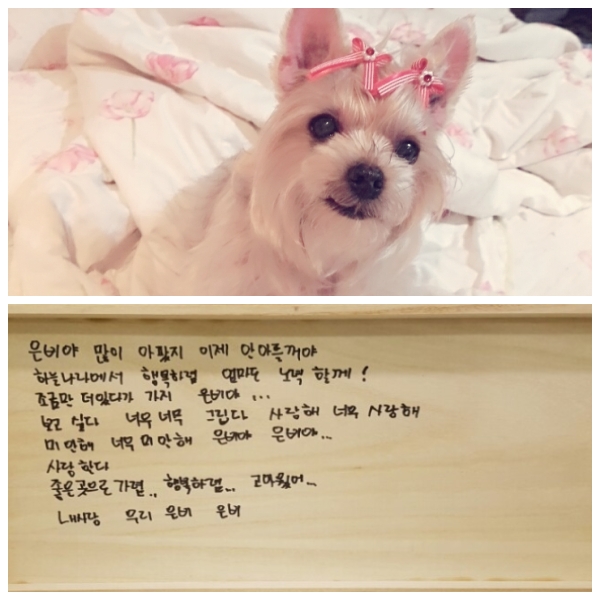 은비야 많이 아팠지 이제 안아플꺼야
하늘나라에서 행복하렴 엄마도 노력 할께!
조금만 더있다가 가지 은비야...
보고 싶다 너무너무 그립다 사랑해 너무 사랑해
미안해 너무 미안해 은비야 은비야...
사랑한다
좋은곳으로가렴.. 행복하렴... 고마웠어...
내사랑 우리 은비 은비